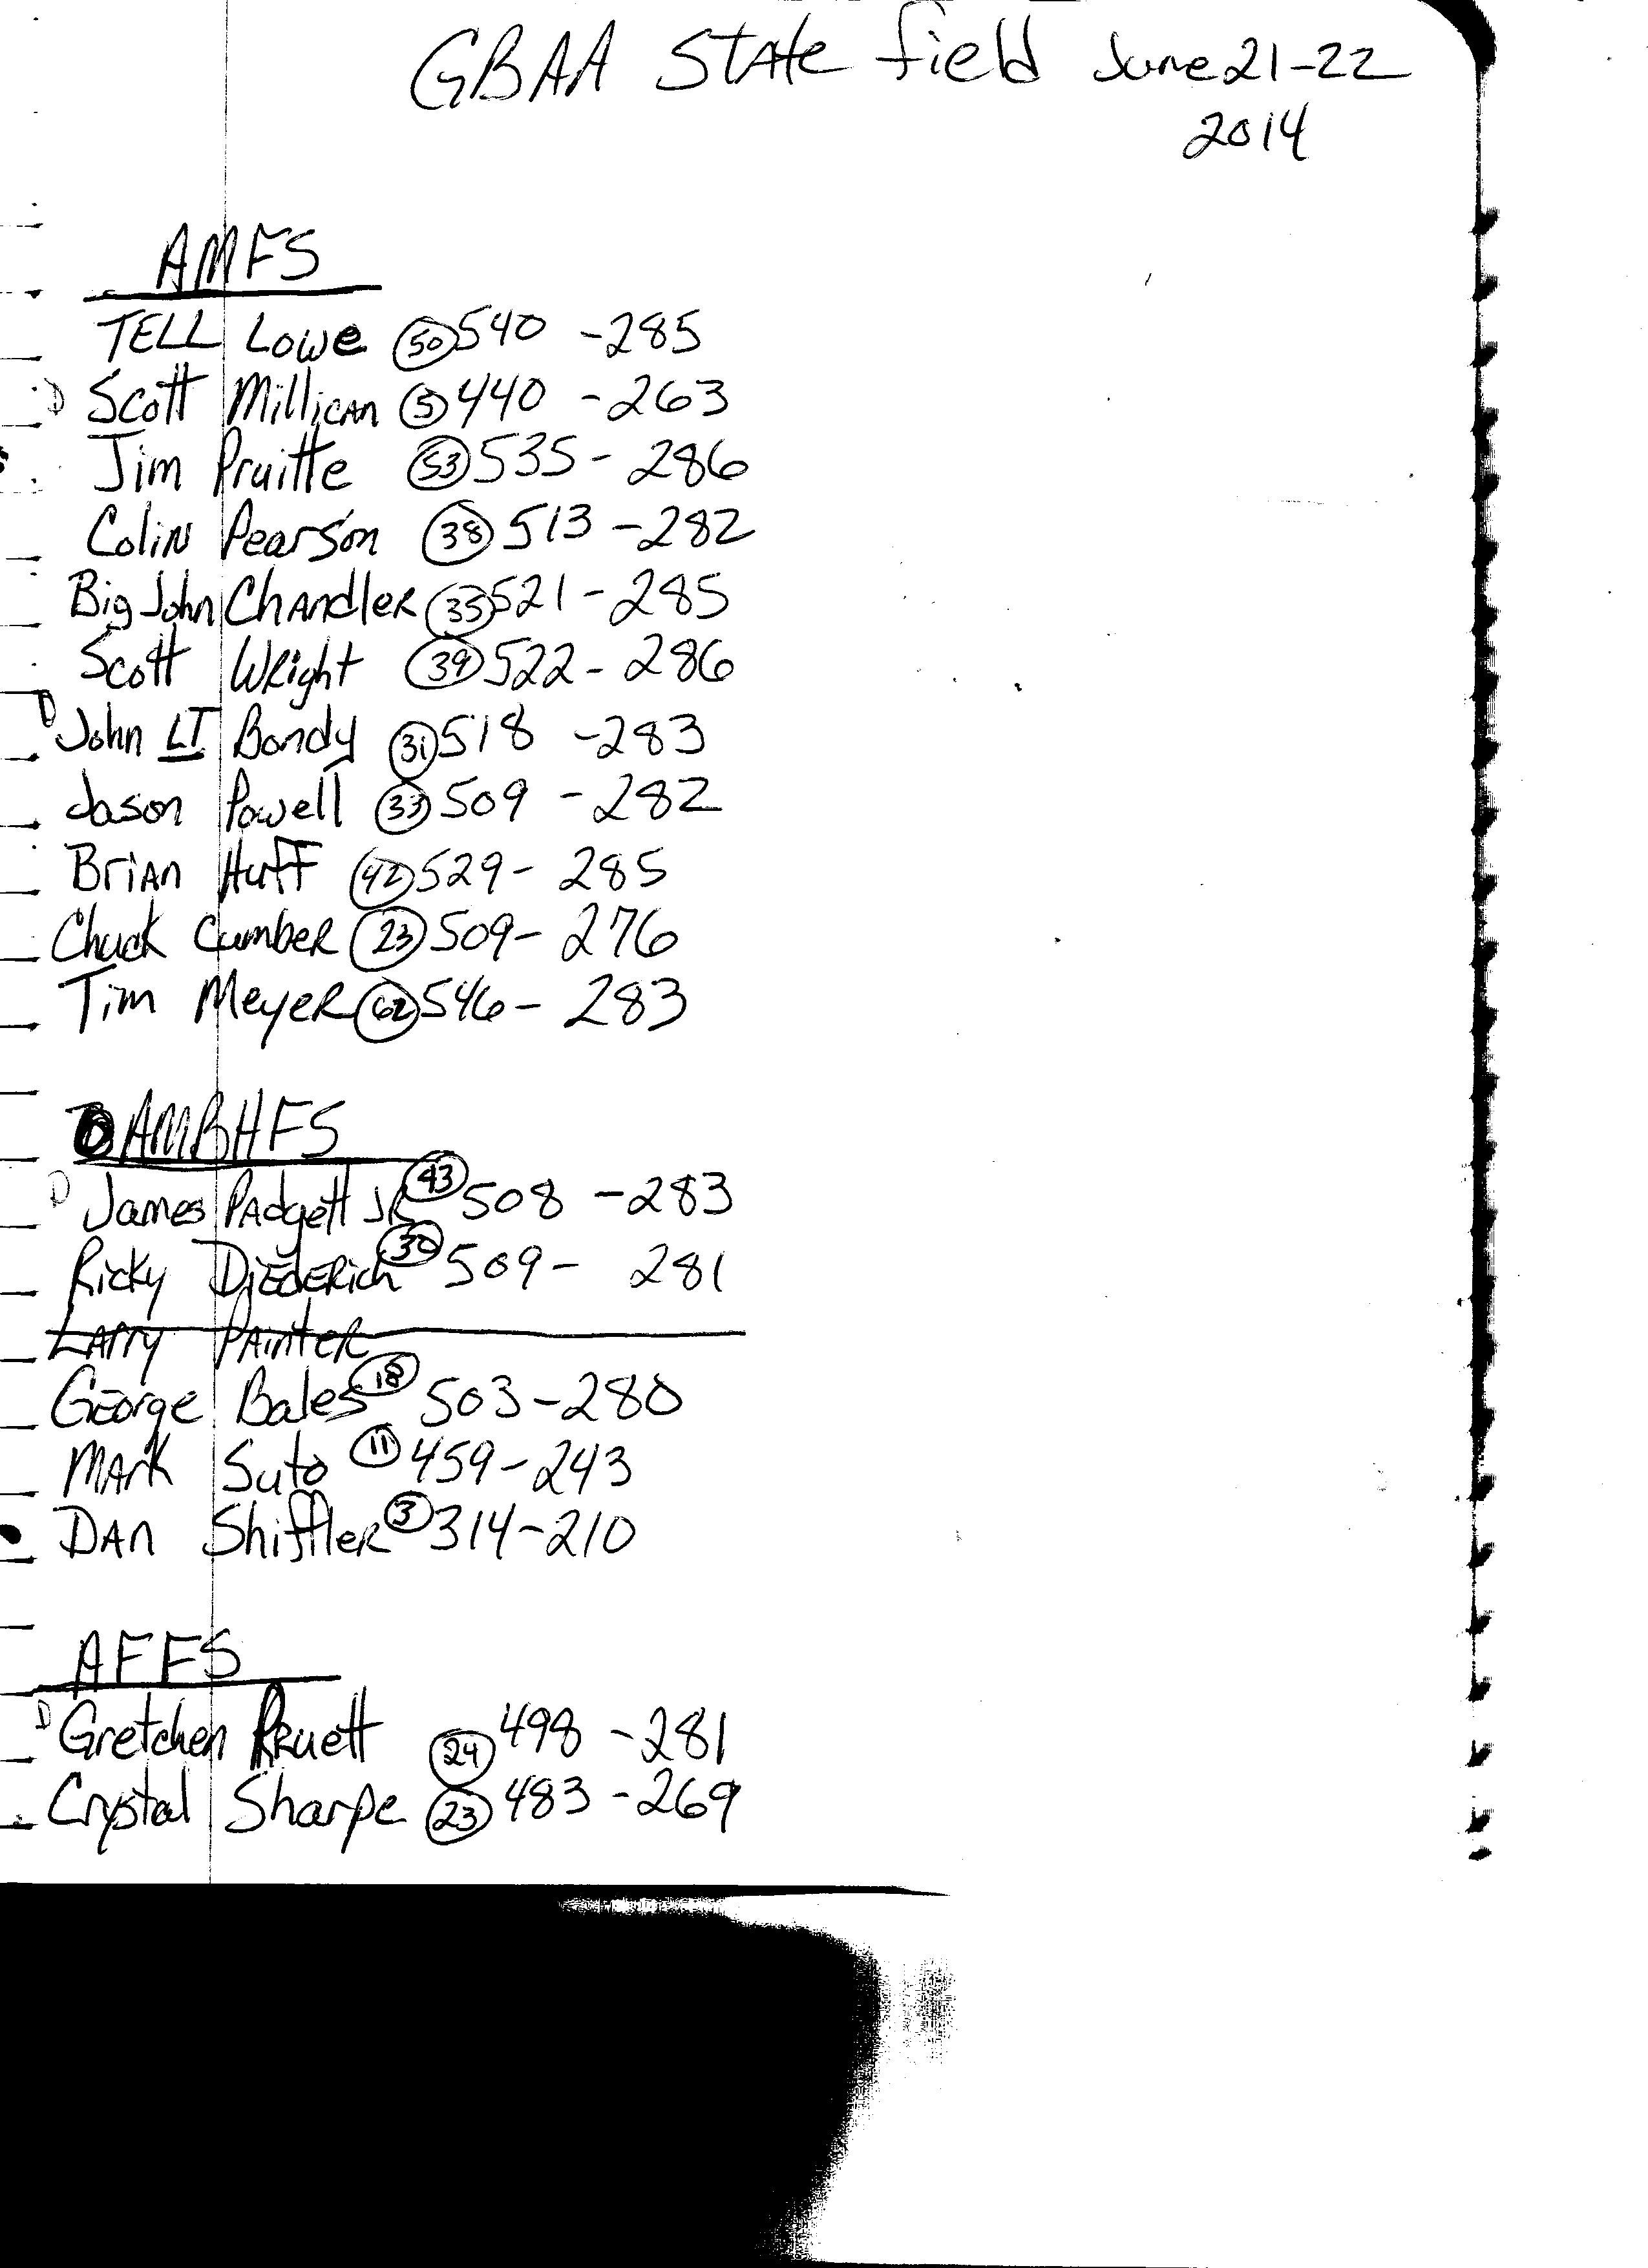 GBAA State field June 21-22
2014
AMFS
TELL Lowe 50 540 - 285
D Scott Millican 5 440 - 263
Jim Pruitte 53 535 - 286
Colin Pearson 38 513 - 282
Big John Chandler 35 521 - 285
Scott Wright 39 522 - 286
D John LT Bondy 31 518 - 283
Jason Powell 33 509 - 282
Brian Huff 42 529 - 285
Chuck Cumber 23 509 - 276
Tim Meyer 62 546 - 283
AMBHFS
D James Padgett JR 43 508 - 283
Ricky Diederich 30 509 - 281
Larry Painter
George Bales 18 503 - 280
Mark Suto 11 459 - 243
Dan Shiffler 3 314 - 210
AFFS
D Gretchen Pruett 24 498 - 281
Crystal Sharpe 23 483 - 269